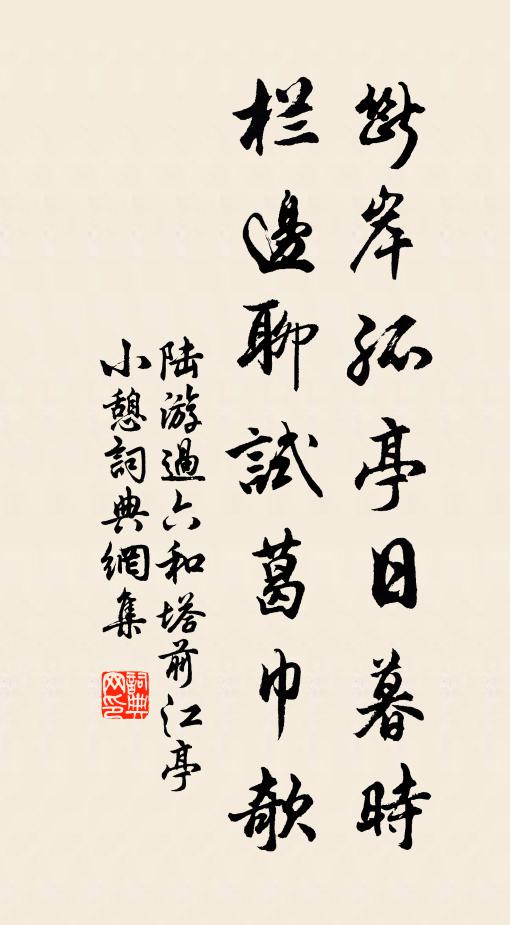 斷岸孤亭日暮時
栏邊聊試葛巾欹
陆游過六和塔前江亭
小憩詞典網集
詞典
网印